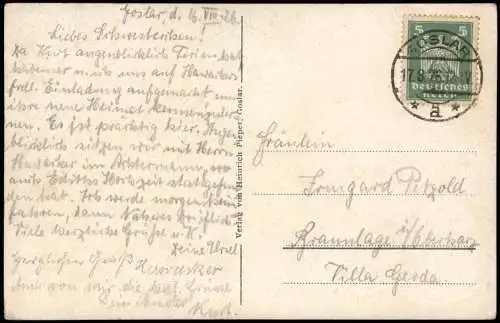 Goslar, d. 16. VIII. 26.
Liebes Schwesterchen!
Da Kurt augenblicklich Ferien hat
haben wir uns auf
Einladung aufgemacht um
ihre neue Heimat kennenzuler-
nen. Es ist prächtig hier. Augen-
blicklich sitzen wir mit Herrn
im Achtermann, wo
auch Ediths Hochzeit stattgefun-
den hat. Ich werde morgen
fahren, dann Näheres brieflich.
Viele herzliche Grüße u. K.
Deine Ursel
Herzlichen Gruß
Auch von mir die best. Grüße
Dein Kurt.
Verlag von Heinrich Pieper, Goslar.
GOSLAR
17.8.26
* a *
5 5
Deutsches
Reich
Fräulein
Irmgard Petzold
Braunlage i/Oberharz
Villa Gerda